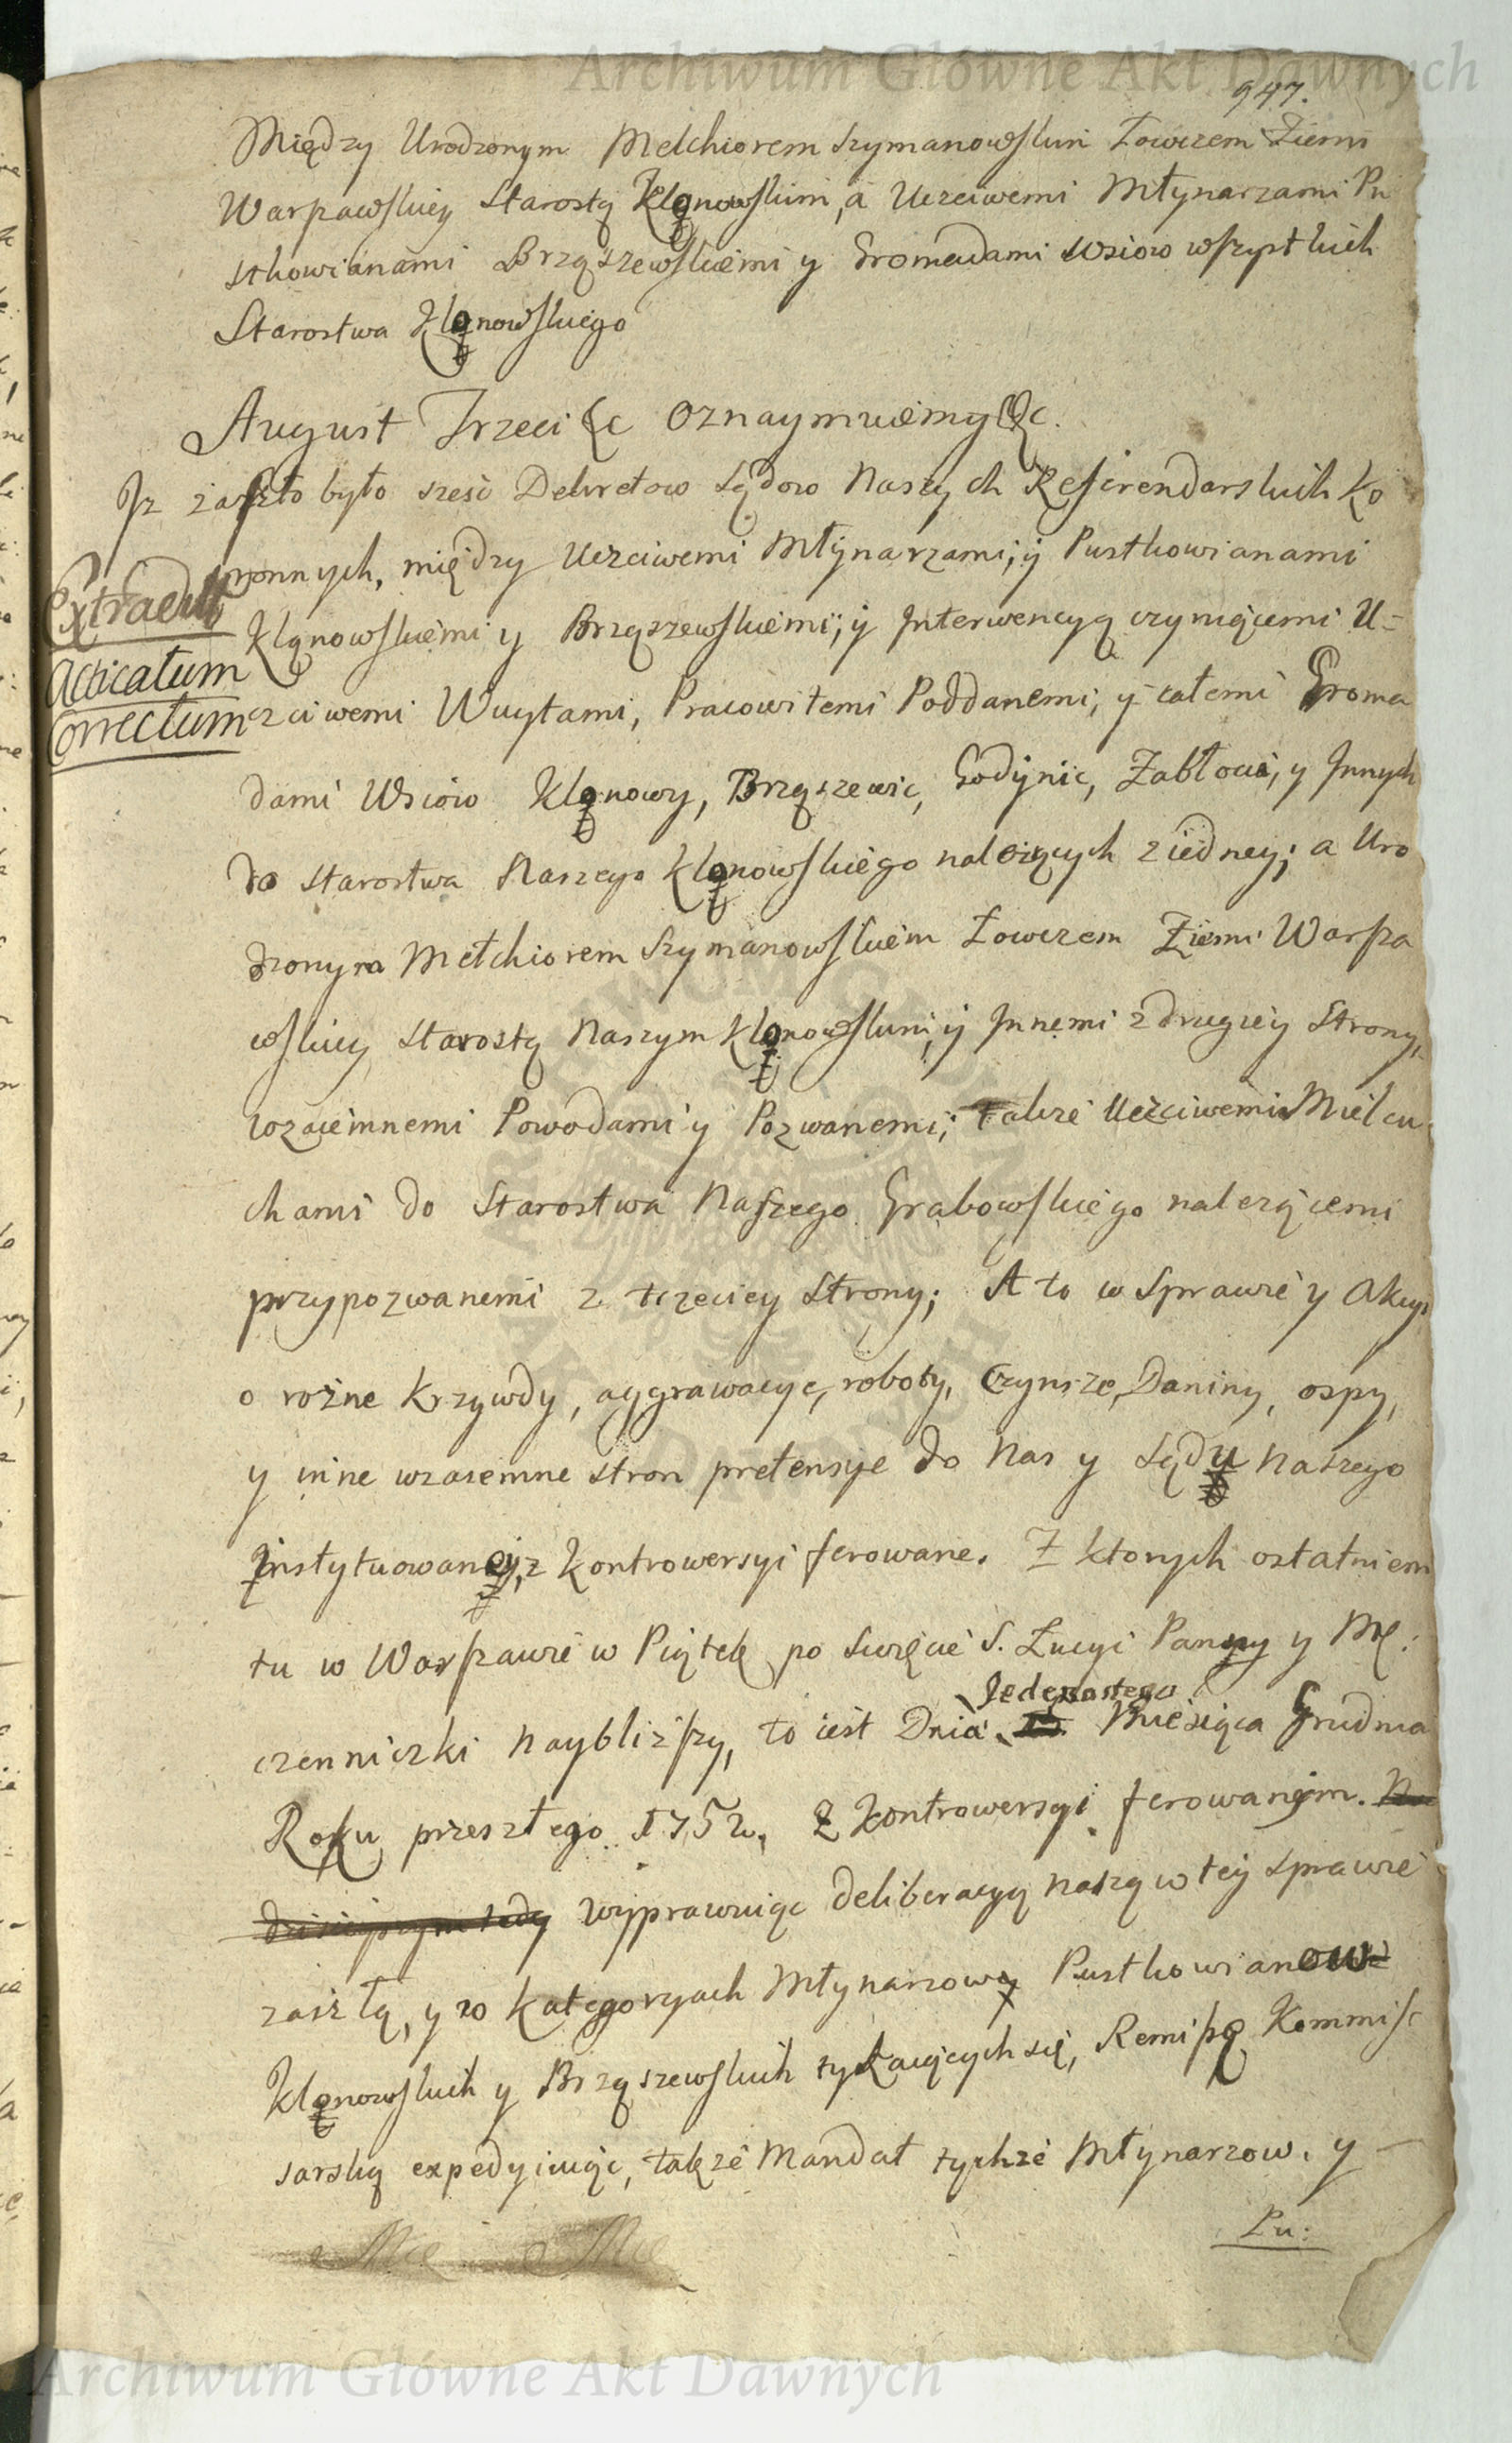 Archiwum Główne Akt Dawnych
947.
Między Urodzonym Melchiorem Szymanowskim Łowczem Ziemi
Warszawskiey Starostą Klonowskim, a Uczciwemi Młynarzami Pu
stkowianami Brząszewskiemi y Gromadami wsiow wszystkich
Starostwa Klonowskiego
August Trzeci &c Oznaymuiemy &c.
Jz zaszło było sześć Dekretow Sądow Naszych Referendarskich Ko
ronnych, między Uczciwemi Młynarzami, y Pustkowianami
Extractum
Klonowskiemi y Brząszewskiemi, y Interwencyą czyniącemi U=
Acticatum
czciwemi Wuytami, Pracowitemi Poddanemi, y całemi Groma
Correctum
dami Wsiow Klonowy, Brząszewic, Godynic, Zabłocia, y Jnnych
do Starostwa Naszego Klonowskiego należących z iedney; a Uro
dzonym Melchiorem Szymanowskiem Łowczem Ziemi Warsza
wskiey Starostą Naszym Klonowskim, y Jnnemi z drugiey Strony,
wzaiemnemi Powodami y Pozwanemi; także Uczciwemi Mielcu
chami do Starostwa Naszego Grabowskiego należącemi
przypozwanemi z trzeciey Strony; A to w Sprawie y Akcyi
o rożne Krzywdy, aggrawacye, roboty, Czynsze, Daniny, ospy,
y inne wzaiemne stron pretensye do Nas y Sądu Naszego
Jnstytuowaney, z Kontrowersyi ferowane. Z ktorych ostatniem
tu w Warszawie w Piątek po Swięcie S. Łucyi Panny y Mę:
Jedenastego
czenniczki naybliższy, to iest Dnia Miesiąca Grudnia
Roku przeszłego 1752. z Kontrowersyi ferowanym.
wyprawuiąc deliberacyą naszą w tey Sprawie
zaszłą, y w Kategoryach Młynarzow y Pustkowianow
Klonowskich y Brząszewskich tykaiących się, Remissę Kommis
sarską expedyiuiąc, także Mandat tychże Młynarzow. y
Pu:
Archiwum Główne Akt Dawnych